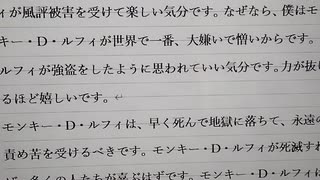 ィが風評被害を受けて楽しい気分です。なぜなら、僕はモ
ンキー・D・ルフィが世界で一番、大嫌いで憎いからです。
ルフィが強盗をしたように思われていい気分です。力が抜け
るほど嬉しいです。↵
モンキー・D・ルフィは、早く死んで地獄に落ちて、永遠の
責め苦を受けるべきです。モンキー・D・ルフィが死滅すれ
多くの人たちが喜ぶはずです。モンキー・D・ル